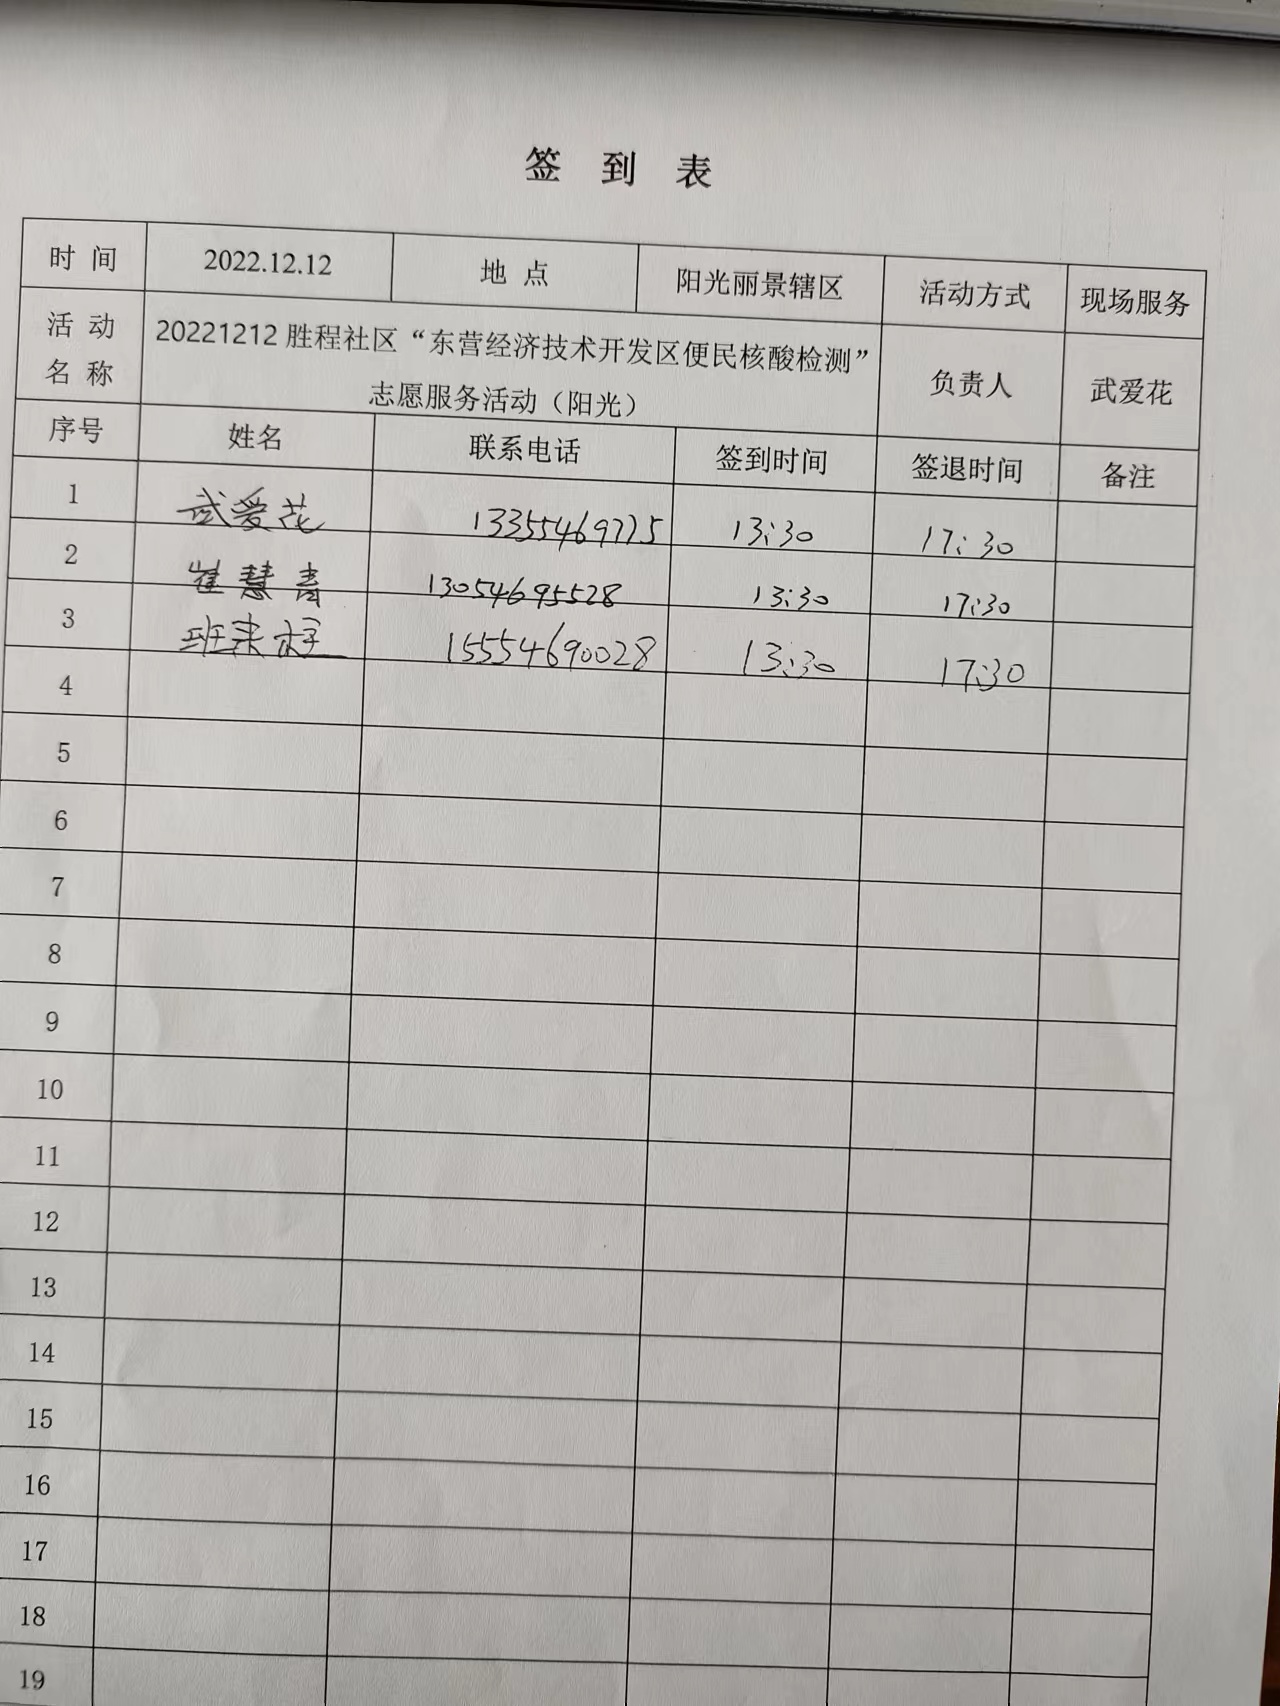 签 到 表
时 间 2022.12.12 地 点 阳光丽景辖区 活动方式 现场服务
活 动 名 称 20221212 胜程社区“东营经济技术开发区便民核酸检测”
志愿服务活动（阳光） 负责人 武爱花
序号 姓名 联系电话 签到时间 签退时间 备注
1 武爱花 13355469775 13:30 17:30
2 崔慧青 13054695528 13:30 17:30
3 班来 15554690028 13:30 17:30
4
5
6
7
8
9
10
11
12
13
14
15
16
17
18
19